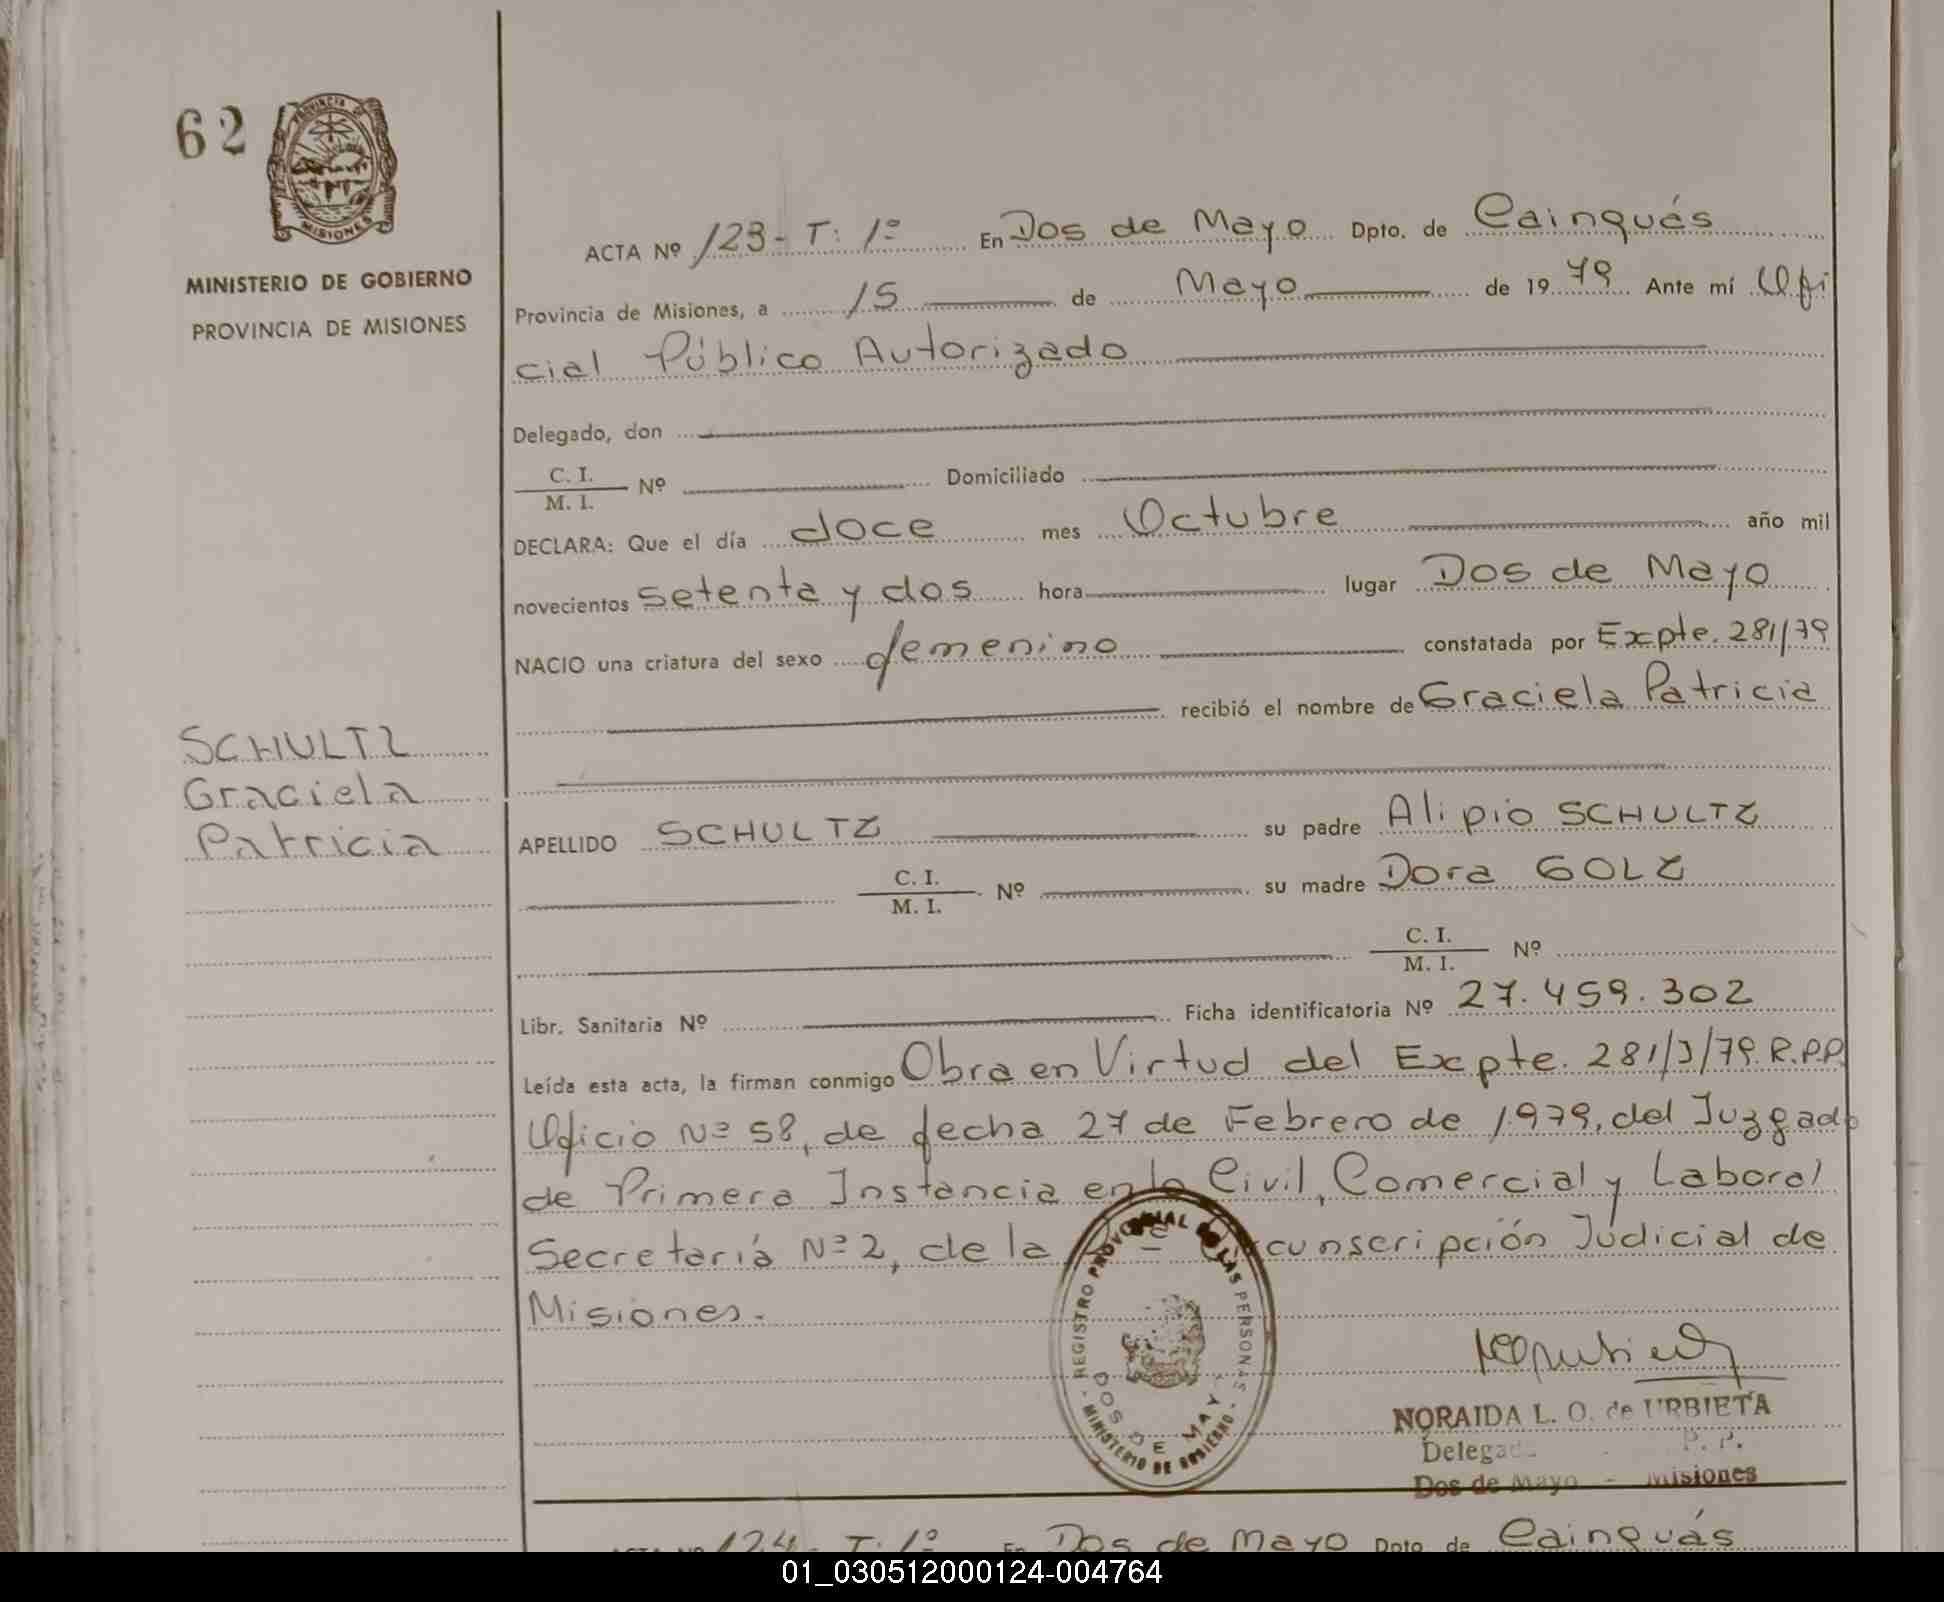 62
PROVINCIA DE
MISIONES
MINISTERIO DE GOBIERNO
PROVINCIA DE MISIONES
ACTA Nº 123- T: 1º En Dos de Mayo Dpto. de Cainguás
Provincia de Misiones, a 15 de Mayo de 1979 Ante mí Ofi
cial Público Autorizado
Delegado, don
C. I.
M. I. Nº Domiciliado
DECLARA: Que el día doce mes Octubre año mil
novecientos setenta y dos hora lugar Dos de Mayo
NACIO una criatura del sexo femenino constatada por Expte. 281/79
recibió el nombre de Graciela Patricia
SCHULTZ
Graciela
Patricia
APELLIDO SCHULTZ su padre Alipio SCHULTZ
C. I.
M. I. Nº su madre Dora GOLZ
C. I.
M. I. Nº
Libr. Sanitaria Nº Ficha identificatoria Nº 27.459.302
Leída esta acta, la firman conmigo Obra en Virtud del Expte. 281/J/79. R.P.P.
Oficio Nº 58, de fecha 27 de Febrero de 1979, del Juzgado
de Primera Instancia en lo Civil, Comercial y Laboral
Secretaría Nº 2, de la Circunscripción Judicial de
Misiones.
REGISTRO PROVINCIAL DE LAS PERSONAS
DOS DE MAYO
MINISTERIO DE GOBIERNO
NORAIDA L. O. de URBIETA
Delegada P. P.
Dos de Mayo - Misiones
ACTA Nº 124- T: 1º En Dos de Mayo Dpto. de Cainguás
01_030512000124-004764